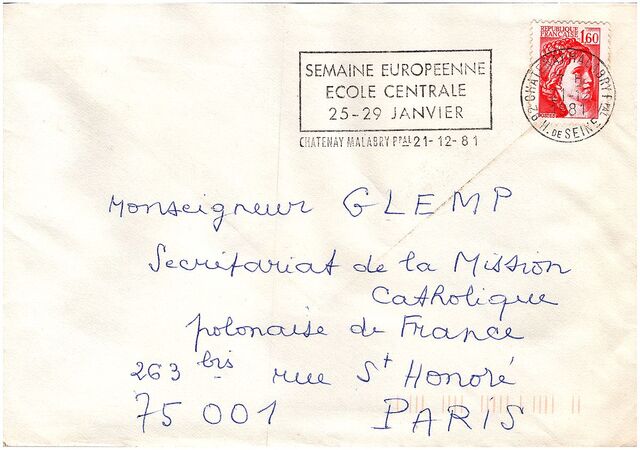 SEMAINE EUROPEENNE
ECOLE CENTRALE
25-29 JANVIER
CHATENAY MALABRY PPAL 21-12-81
REPUBLIQUE
FRANCAISE
1,60
92 H. DE SEINE
81
Monseigneur GLEMP
Secrétariat de la Mission
Catholique
polonaise de France
263 bis rue St Honoré
75 001 PARIS